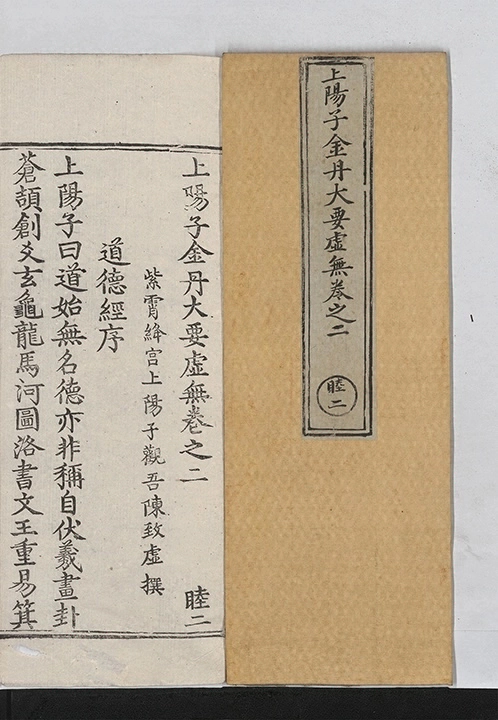 上陽子金丹大要虛無卷之二
睦二
上陽子金丹大要虛無卷之二 睦二
紫霄絳宮上陽子觀吾陳致虛撰
道德經序
上陽子曰道始無名德亦非稱自伏羲畫卦
蒼頡創爻玄龜龍馬河圖洛書文王重易箕